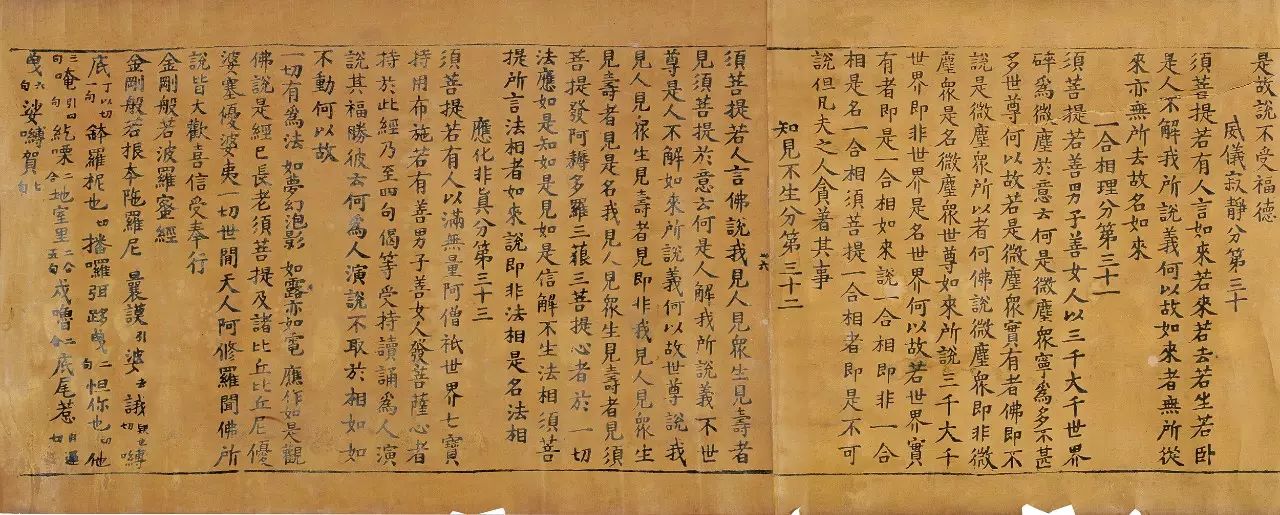 是故說不受福德
威儀寂靜分第三十
須菩提若有人言如來若來若去若生若卧
是人不解我所說義何以故如來者無所從
來亦無所去故名如來
一合相理分第三十一
須菩提若善男子善女人以三千大千世界
碎為微塵於意云何是微塵眾寧為多不甚
多世尊何以故若是微塵眾實有者佛即不
說是微塵眾所以者何佛說微塵眾即非微
塵眾是名微塵眾世尊如來所說三千大千
世界即非世界是名世界何以故若世界實
有者即是一合相如來說一合相即非一合
相是名一合相須菩提一合相者即是不可
說但凡夫之人貪著其事
知見不生分第三十二
須菩提若人言佛說我見人見眾生見壽者
見須菩提於意云何是人解我所說義不世
尊是人不解如來所說義何以故世尊說我
見人見眾生見壽者見即非我見人見眾生
見壽者見是名我見人見眾生見壽者見須
菩提發阿耨多羅三藐三菩提心者於一切
法應如是知如是見如是信解不生法相須菩
提所言法相者如來說即非法相是名法相
應化非真分第三十三
須菩提若有人以滿無量阿僧祇世界七寶
持用布施若有善男子善女人發菩薩心者
持於此經乃至四句偈等受持讀誦為人演
說其福勝彼云何為人演說不取於相如如
不動何以故
一切有為法 如夢幻泡影 如露亦如電 應作如是觀
佛說是經已長老須菩提及諸比丘比丘尼優
婆塞優婆夷一切世間天人阿修羅聞佛所
說皆大歡喜信受奉行
金剛般若波羅蜜經
金剛般若根本陁羅尼 曩謨引婆去誐切縛
底丁以切一句鉢羅枳也切播羅弭跢曳二句怛你也切他
三句唵引四句吃㗚二合地室里二合五句戍嚕二合底尾惹
曳六句娑嚩賀七句